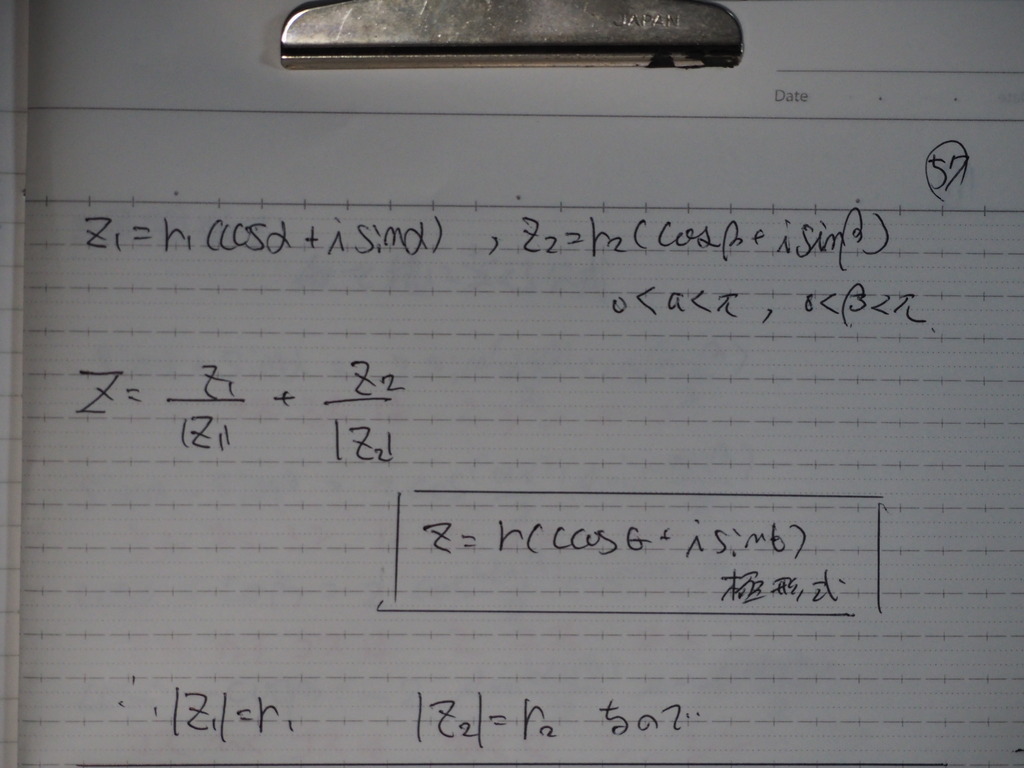 JAPAN
Date
57
z₁=r₁(cosα+i sinα) , z₂=r₂(cosβ+i sinβ)
0<α<π , 0<β<π
z= z₁/|z₁| + z₂/|z₂|
z=r(cosθ+i sinθ)
極形式
|z₁|=r₁ |z₂|=r₂ なので